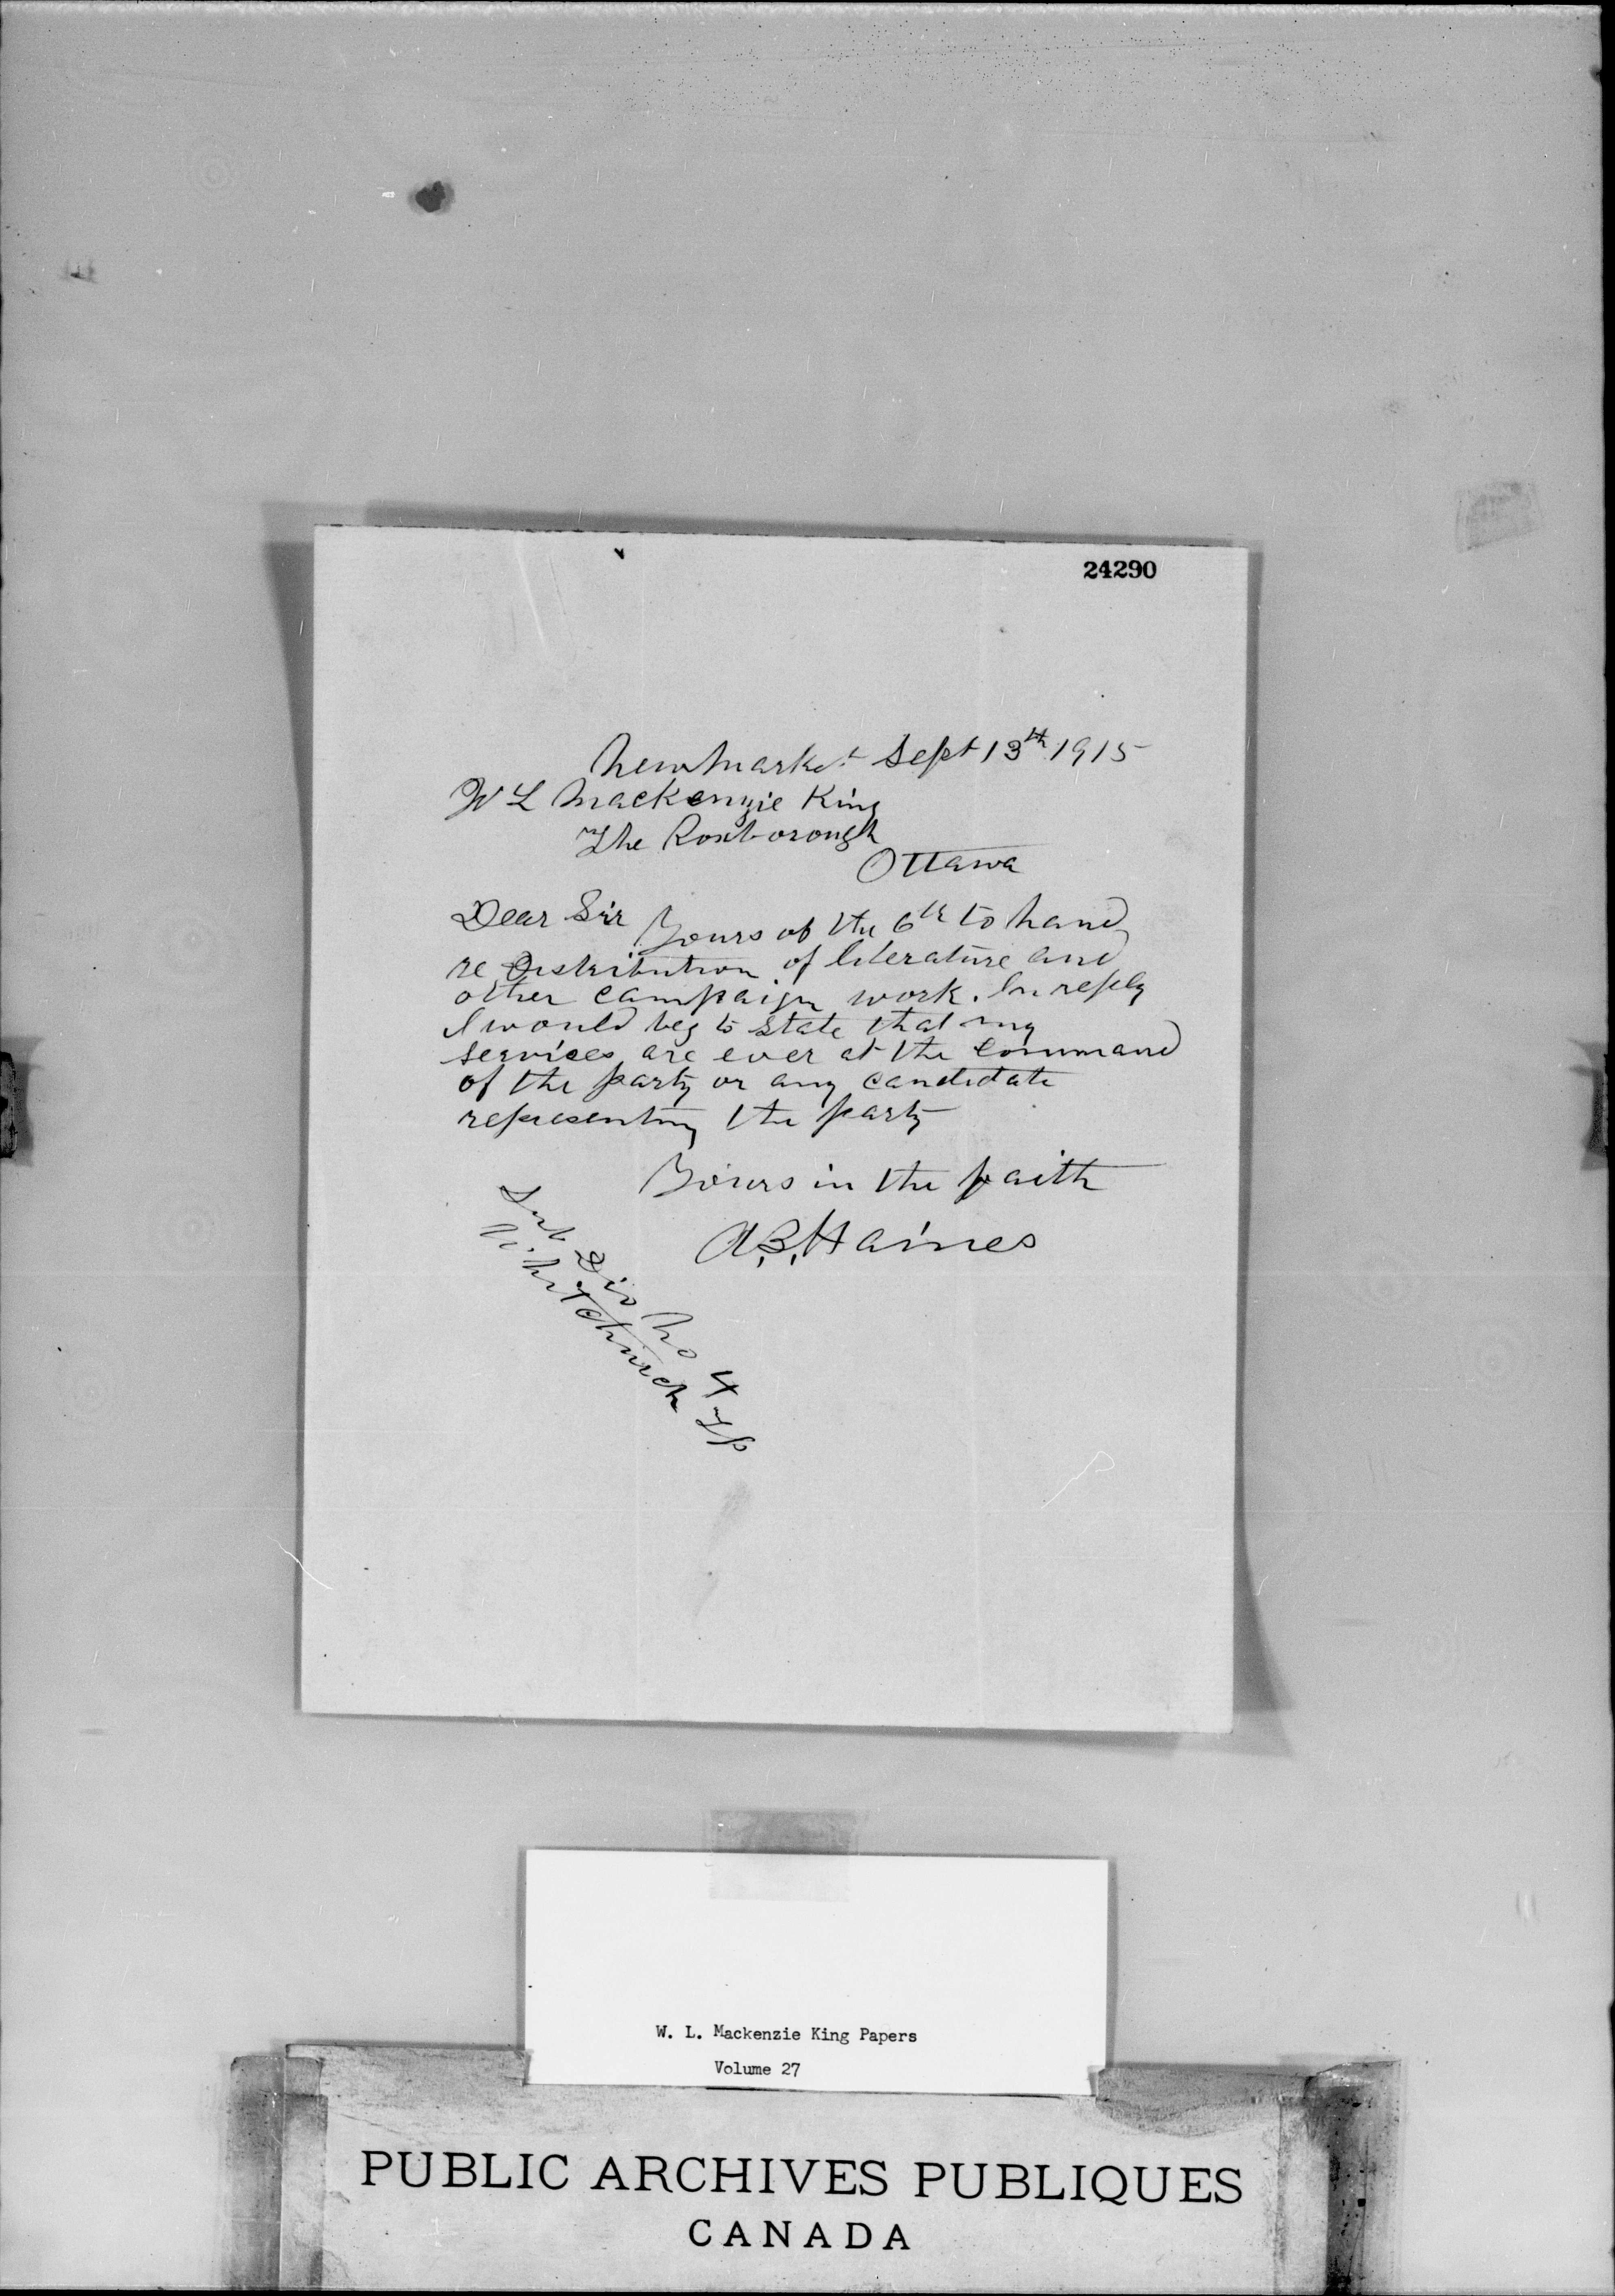 24290
Newmarket Sept 13th 1915
W L Mackenzie King
The Roxborough
Ottawa
Dear Sir
Yours of the 6th to hand
re Distribution of literature and
other campaign work. In reply
I would beg to state that my
services are ever at the command
of the party or any candidate
representing the party
Yours in the faith
A.B. Haines
Sub Div No 4 Tp
Whitchurch
W. L. Mackenzie King Papers
Volume 27
PUBLIC ARCHIVES PUBLIQUES
CANADA